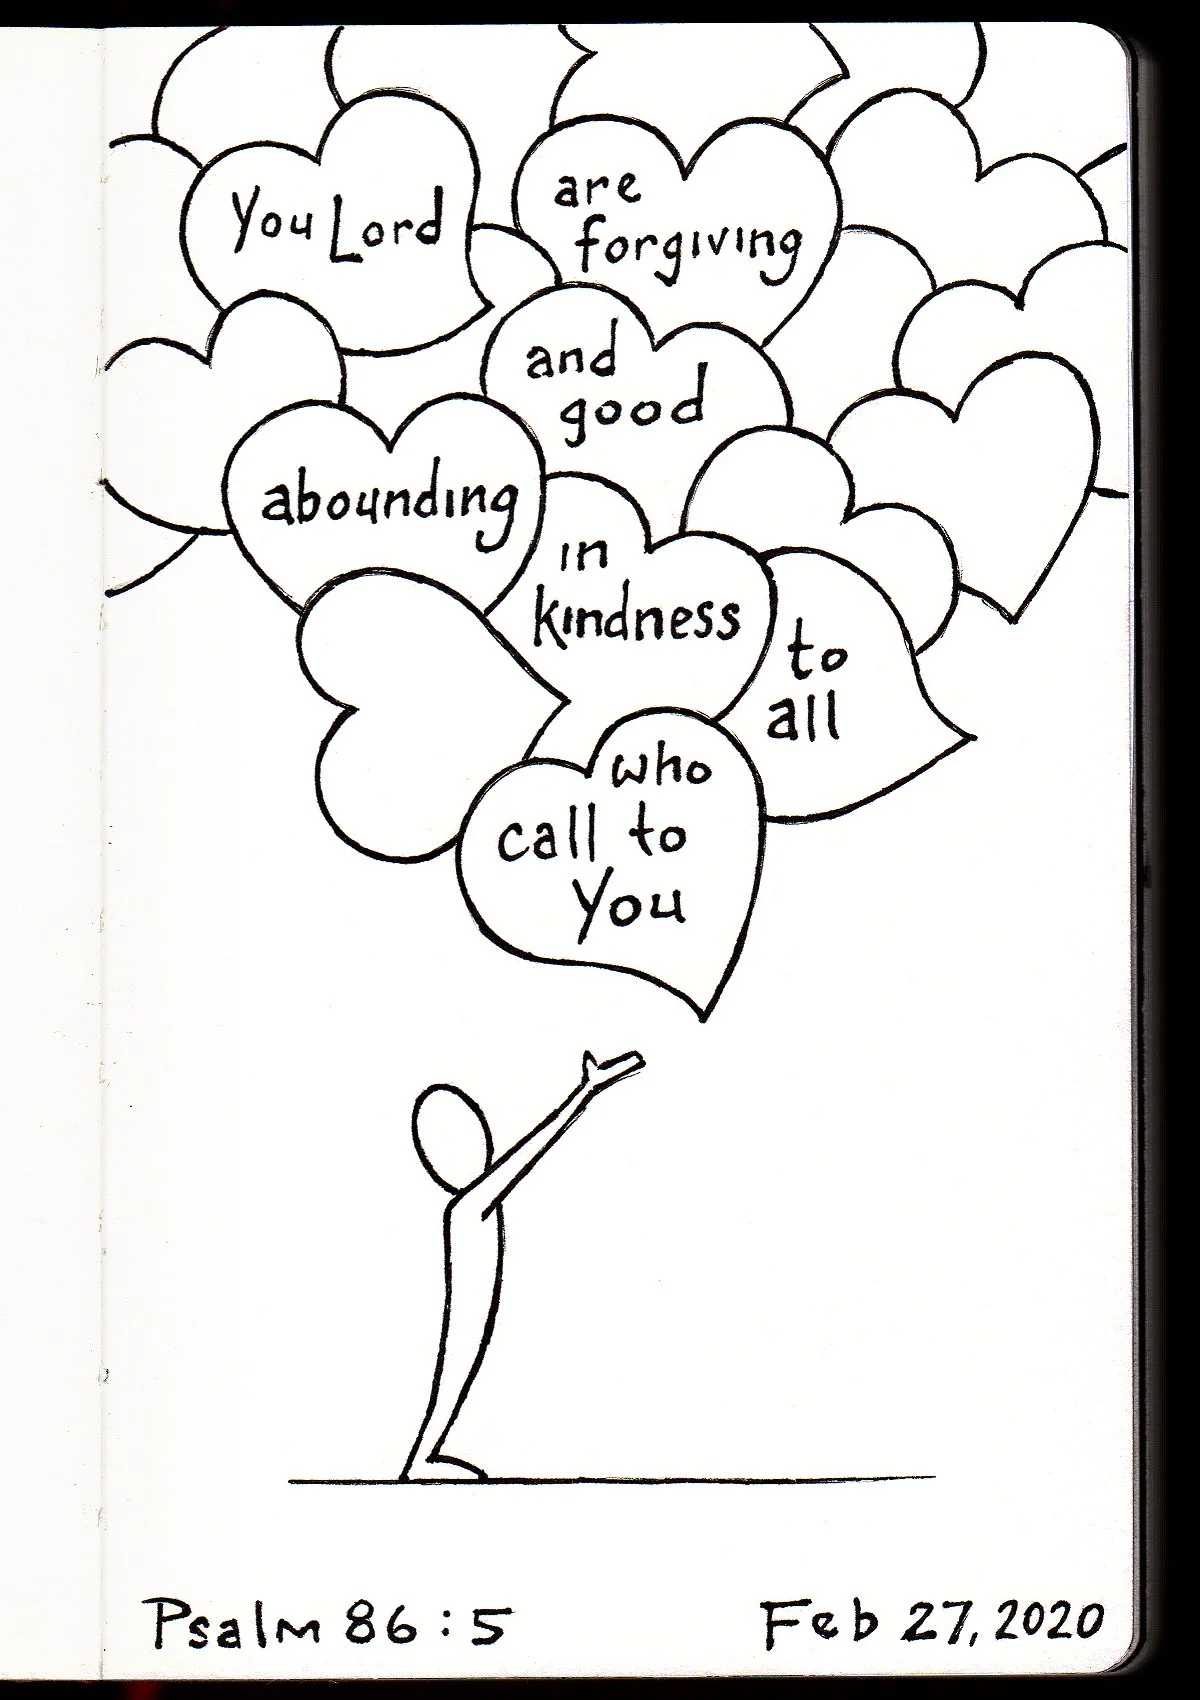 You Lord
are
forgiving
and
good
abounding
in
kindness
to
all
who
call to
You
Psalm 86:5
Feb 27, 2020